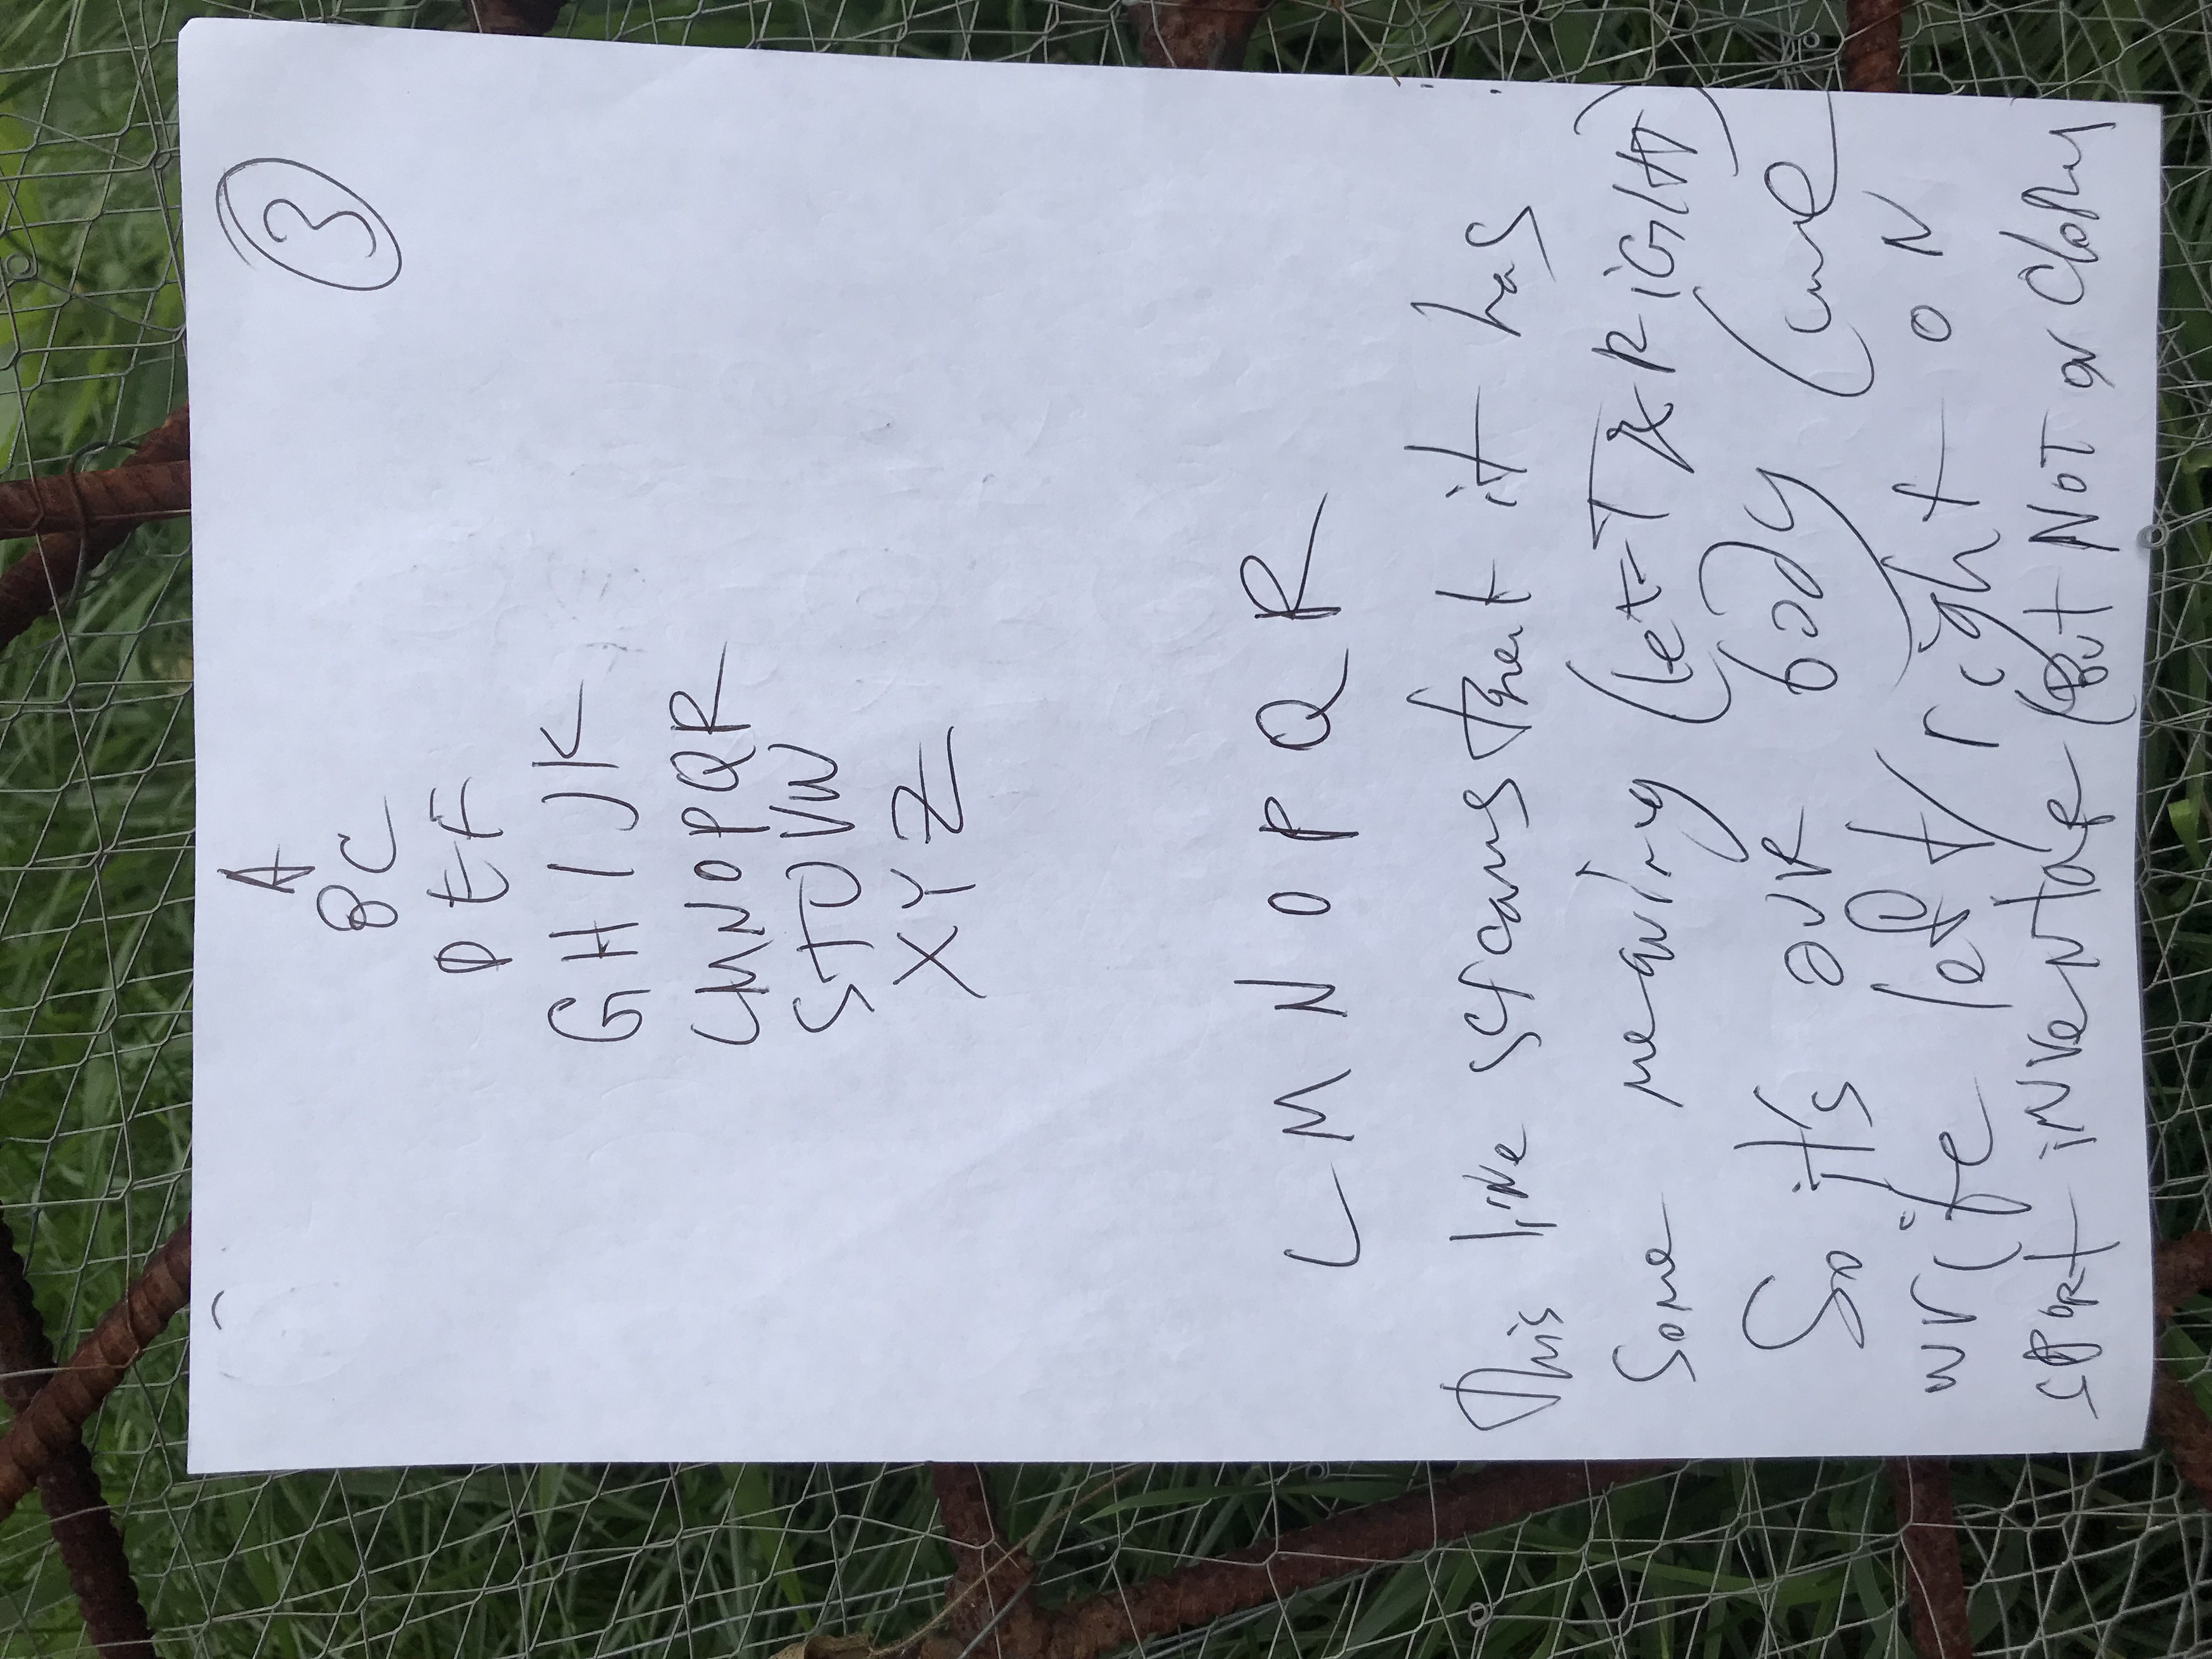 3
A
BC
DEF
GHIJK
LMNOPQR
STUVW
XYZ
L M N O P Q R
This line screams that it has
some meaning (lefT & RiGHT)
So it's our body (we
write left/right on
sport inventar (But NOT on